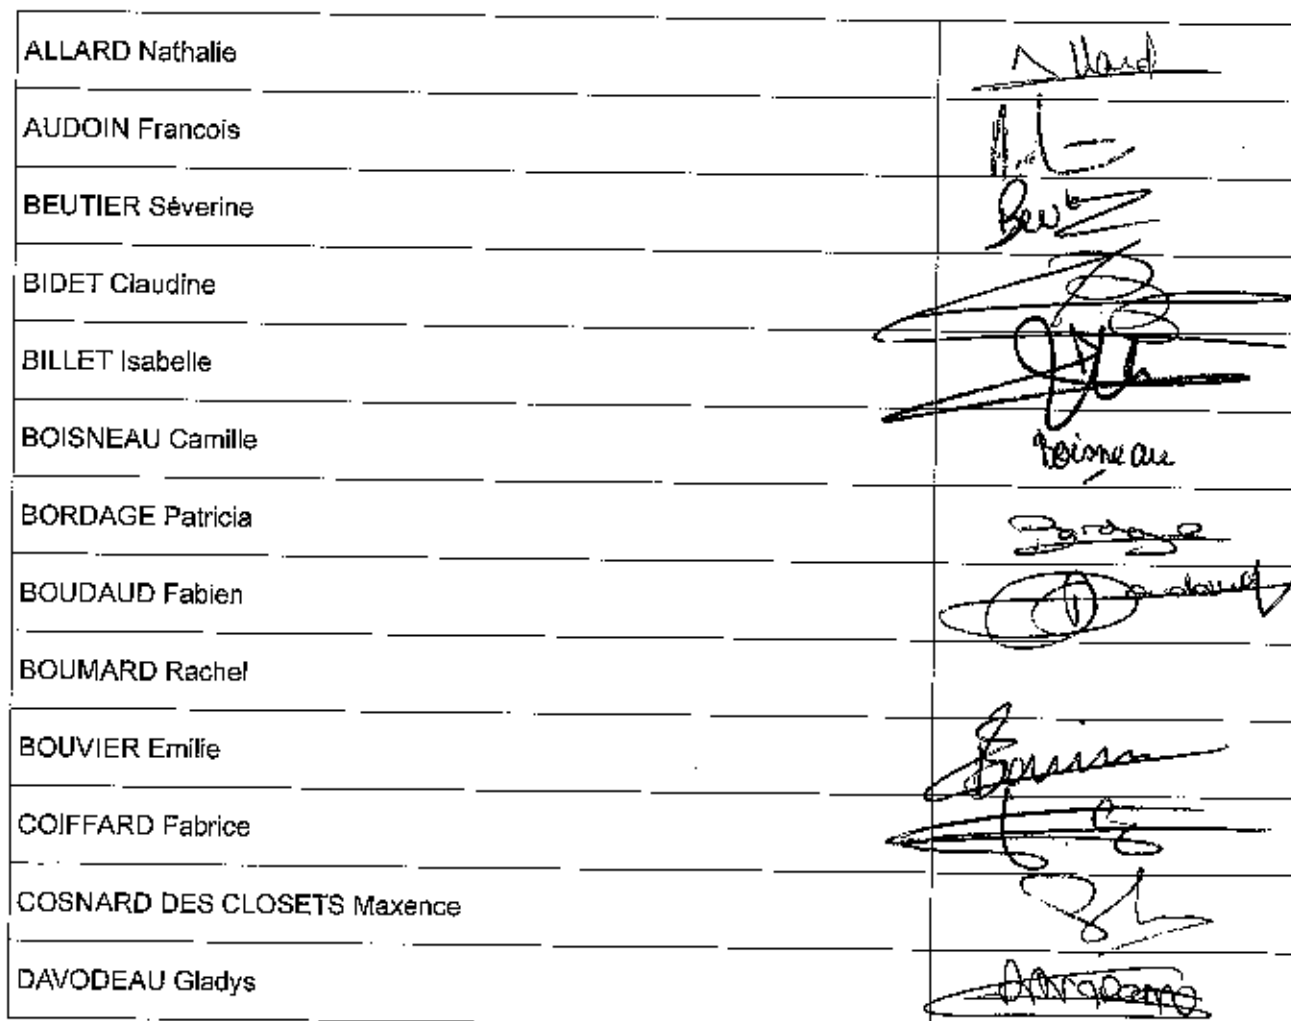 ALLARD Nathalie Allard
AUDOIN Francois
BEUTIER Séverine Beut
BIDET Claudine
BILLET Isabelle
BOISNEAU Camille Boisneau
BORDAGE Patricia Bordage
BOUDAUD Fabien
BOUMARD Rachel
BOUVIER Emilie
COIFFARD Fabrice
COSNARD DES CLOSETS Maxence
DAVODEAU Gladys